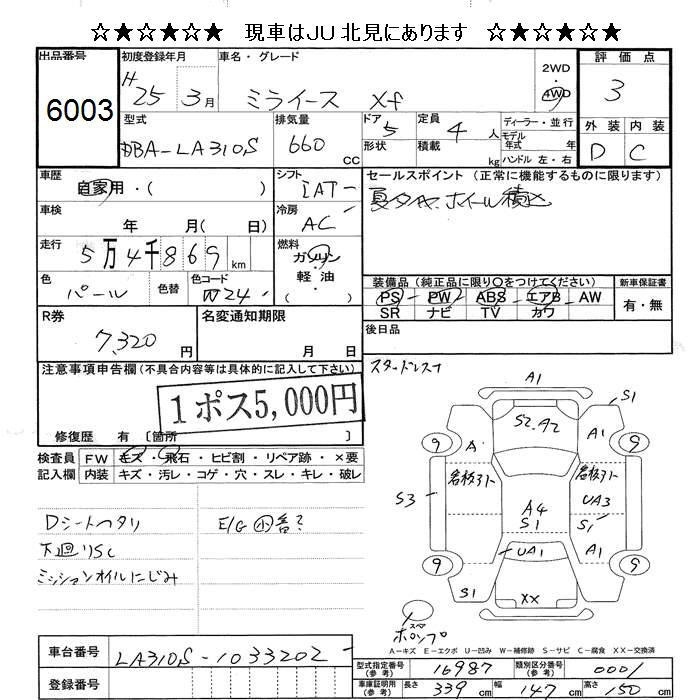 ☆★☆★☆★ 現車はJU北見にあります ☆★☆★☆★
出品番号 6003
初度登録年月 H25 3月
車名・グレード ミライース Xf
2WD
4WD
評価点 3
外装 内装
D C
型式 DBA-LA310S
排気量 660 CC
ドア 5
形状
定員 4 人
積載 kg
ディーラー・並行
モデル
年式 年
ハンドル 左・右
車歴 自家用・( )
シフト IAT
セールスポイント (正常に機能するものに限ります)
夏タイヤ、ホイール積込
車検 年 月( 日)
冷房 AC
走行 5万4千869 km
燃料 ガソリン
軽油
( )
色 パール
色替
色コード W24
装備品(純正品に限り○をつけてください)
PS・PW・ABS・エアB・AW
SR ナビ TV カワ
新車保証書
有・無
R券 7,320 円
名変通知期限 月 日
後日品
注意事項申告欄(不具合内容等は具体的に記入して下さい)
1ポス5,000円
修復歴 有 〔箇所 〕
スタッドレス
検査員 FW キズ・飛石・ヒビ割・リペア跡・×要
記入欄 内装 キズ・汚レ・コゲ・穴・スレ・キレ・破レ
Dシートヘタリ
E/G 小 音?
下廻りSC
ミッションオイルにじみ
A1
S1
S2.A2
9 A A1 9
S3
A4
S1
UA3
S1
UA1
A1
9 9
S1
XX
A-キズ E-エクボ U-凹み W-補修跡 S-サビ C-腐食 XX-交換済
車台番号 LA310S-1033202
登録番号
型式指定番号(参考) 16987
類別区分番号(参考) 0001
車庫証明用(参考) 長さ 339 cm 幅 147 cm 高さ 150 cm